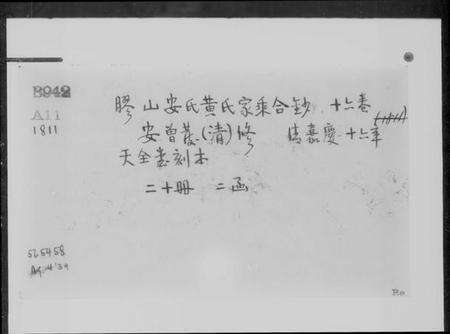 B942
A11
1811
膠山安氏黄氏家乘合鈔 十六卷
安曾蔭(清)修 清嘉慶十六年(1811)
天全堂刻本
二十冊 二函
565458
Ro